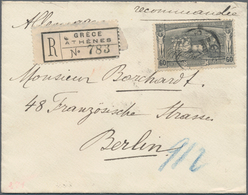 Allemagne recommandée
R GRÈCE
ATHÈNES
N° 783
60 60
Monsieur Borchardt
48 Französische Strasse
Berlin